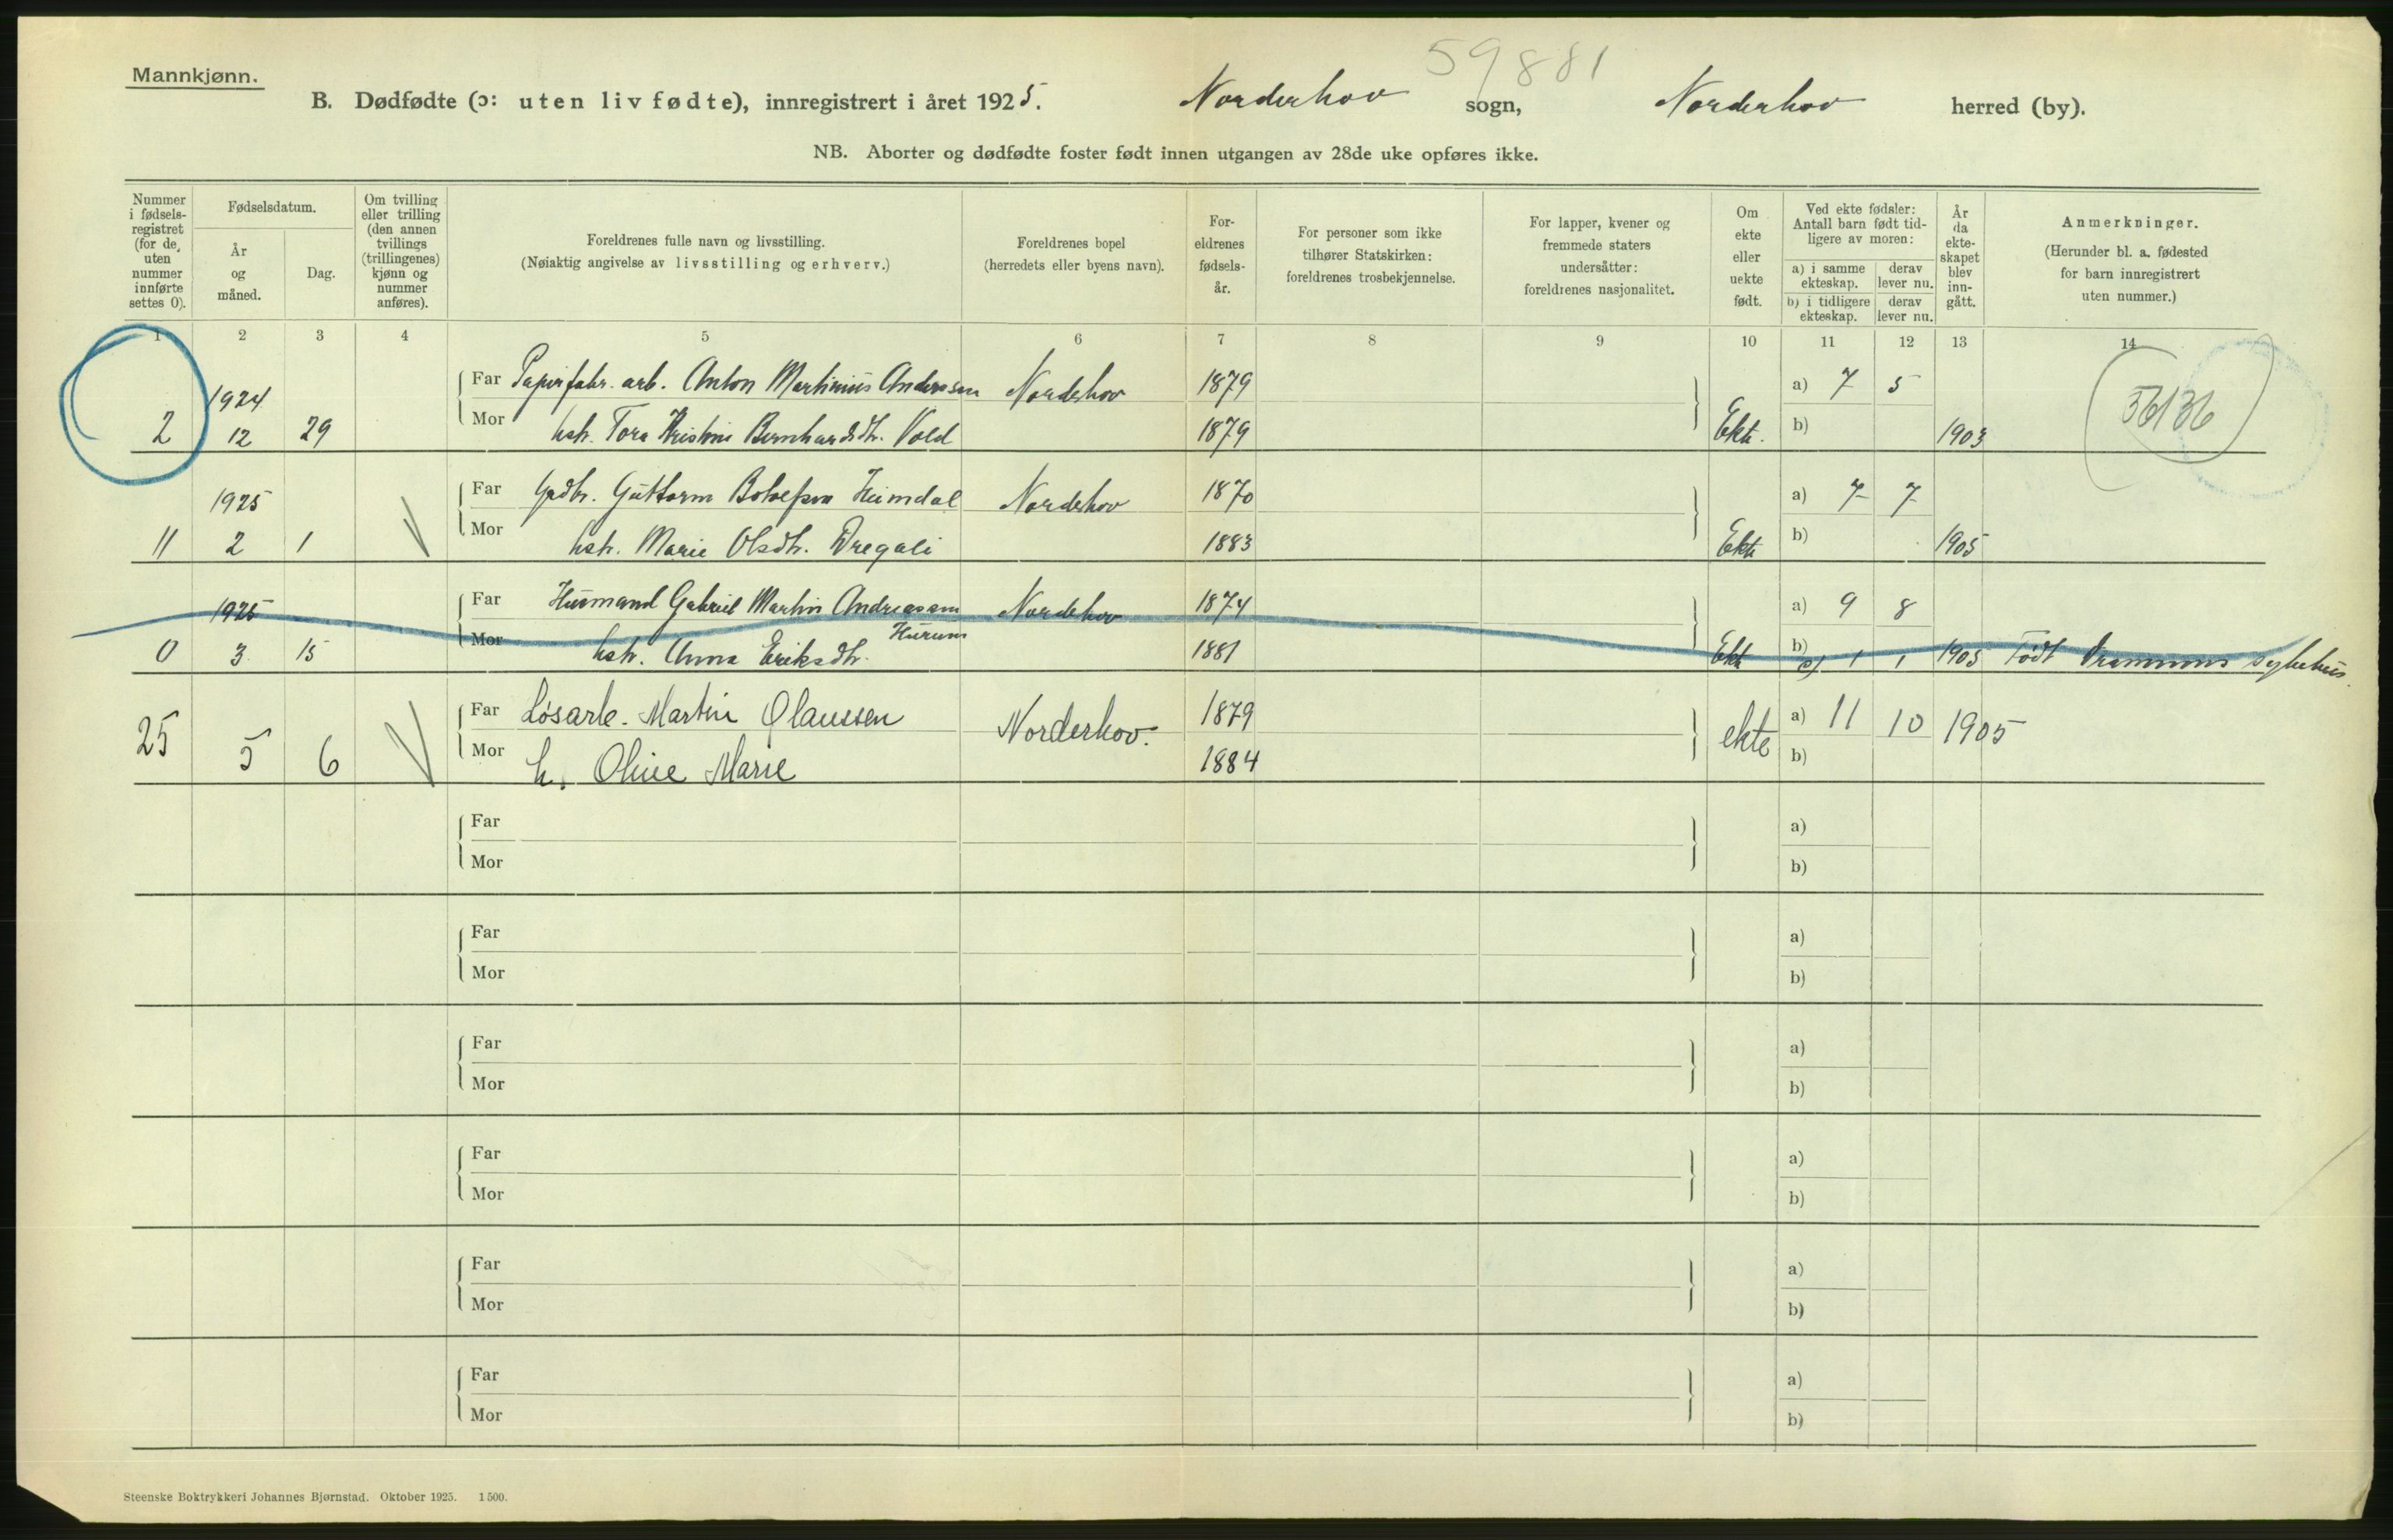 59881
Mannkjønn.
B. Dødfødte (ɔ: uten liv fødte), innregistrert i året 1925. Norderhov sogn, Norderhov herred (by).
NB. Aborter og dødfødte foster født innen utgangen av 28de uke opføres ikke.
Nummer i fødsels-registret (for de, uten nummer innførte settes 0).
Fødselsdatum.
År og måned.
Dag.
Om tvilling eller trilling (den annen tvillings (trillingenes) kjønn og nummer anføres).
Foreldrenes fulle navn og livsstilling.
(Nøiaktig angivelse av livsstilling og erhverv.)
Foreldrenes bopel
(herredets eller byens navn).
For-eldrenes fødsels-år.
For personer som ikke tilhører Statskirken: foreldrenes trosbekjennelse.
For lapper, kvener og fremmede staters undersåtter: foreldrenes nasjonalitet.
Om ekte eller uekte født.
Ved ekte fødsler: Antall barn født tid-ligere av moren:
a) i samme ekteskap.
derav lever nu.
b) i tidligere ekteskap.
derav lever nu.
År da ekte-skapet blev inn-gått.
Anmerkninger.
(Herunder bl. a. fødested for barn innregistrert uten nummer.)
1 2 3 4 5 6 7 8 9 10 11 12 13 14
1924 Far Papirfabr. arb. Anton Martinius Anderssen Norderhov 1879 a) 7 5 56136
2 12 29 Mor hstr. Tora Kristine Bernhardsdtr. Vold 1879 Ekte. b) 1903
1925 Far Grdbr. Guttorm Botolfson Heimdal Norderhov 1870 a) 7 7
11 2 1 Mor hstr. Marie Olsdtr. 1883 Ekte b) 1905
1925 Far Husmand Gabriel Martin Andreassen Norderhov 1874 a) 9 8
Hurum
0 3 15 Mor hstr. Anna Eriksdtr. 1881 Ekte b) 1 1 1905 Født Drammens sykehus.
25 5 6 Far Løsarb. Martin Olaussen Norderhov. 1879 ekte a) 11 10 1905
Mor h. Oline Marie 1884 b)
Far a)
Mor b)
Far a)
Mor b)
Far a)
Mor b)
Far a)
Mor b)
Far a)
Mor b)
Far a)
Mor b)
Steenske Boktrykkeri Johannes Bjørnstad. Oktober 1925. 1500.